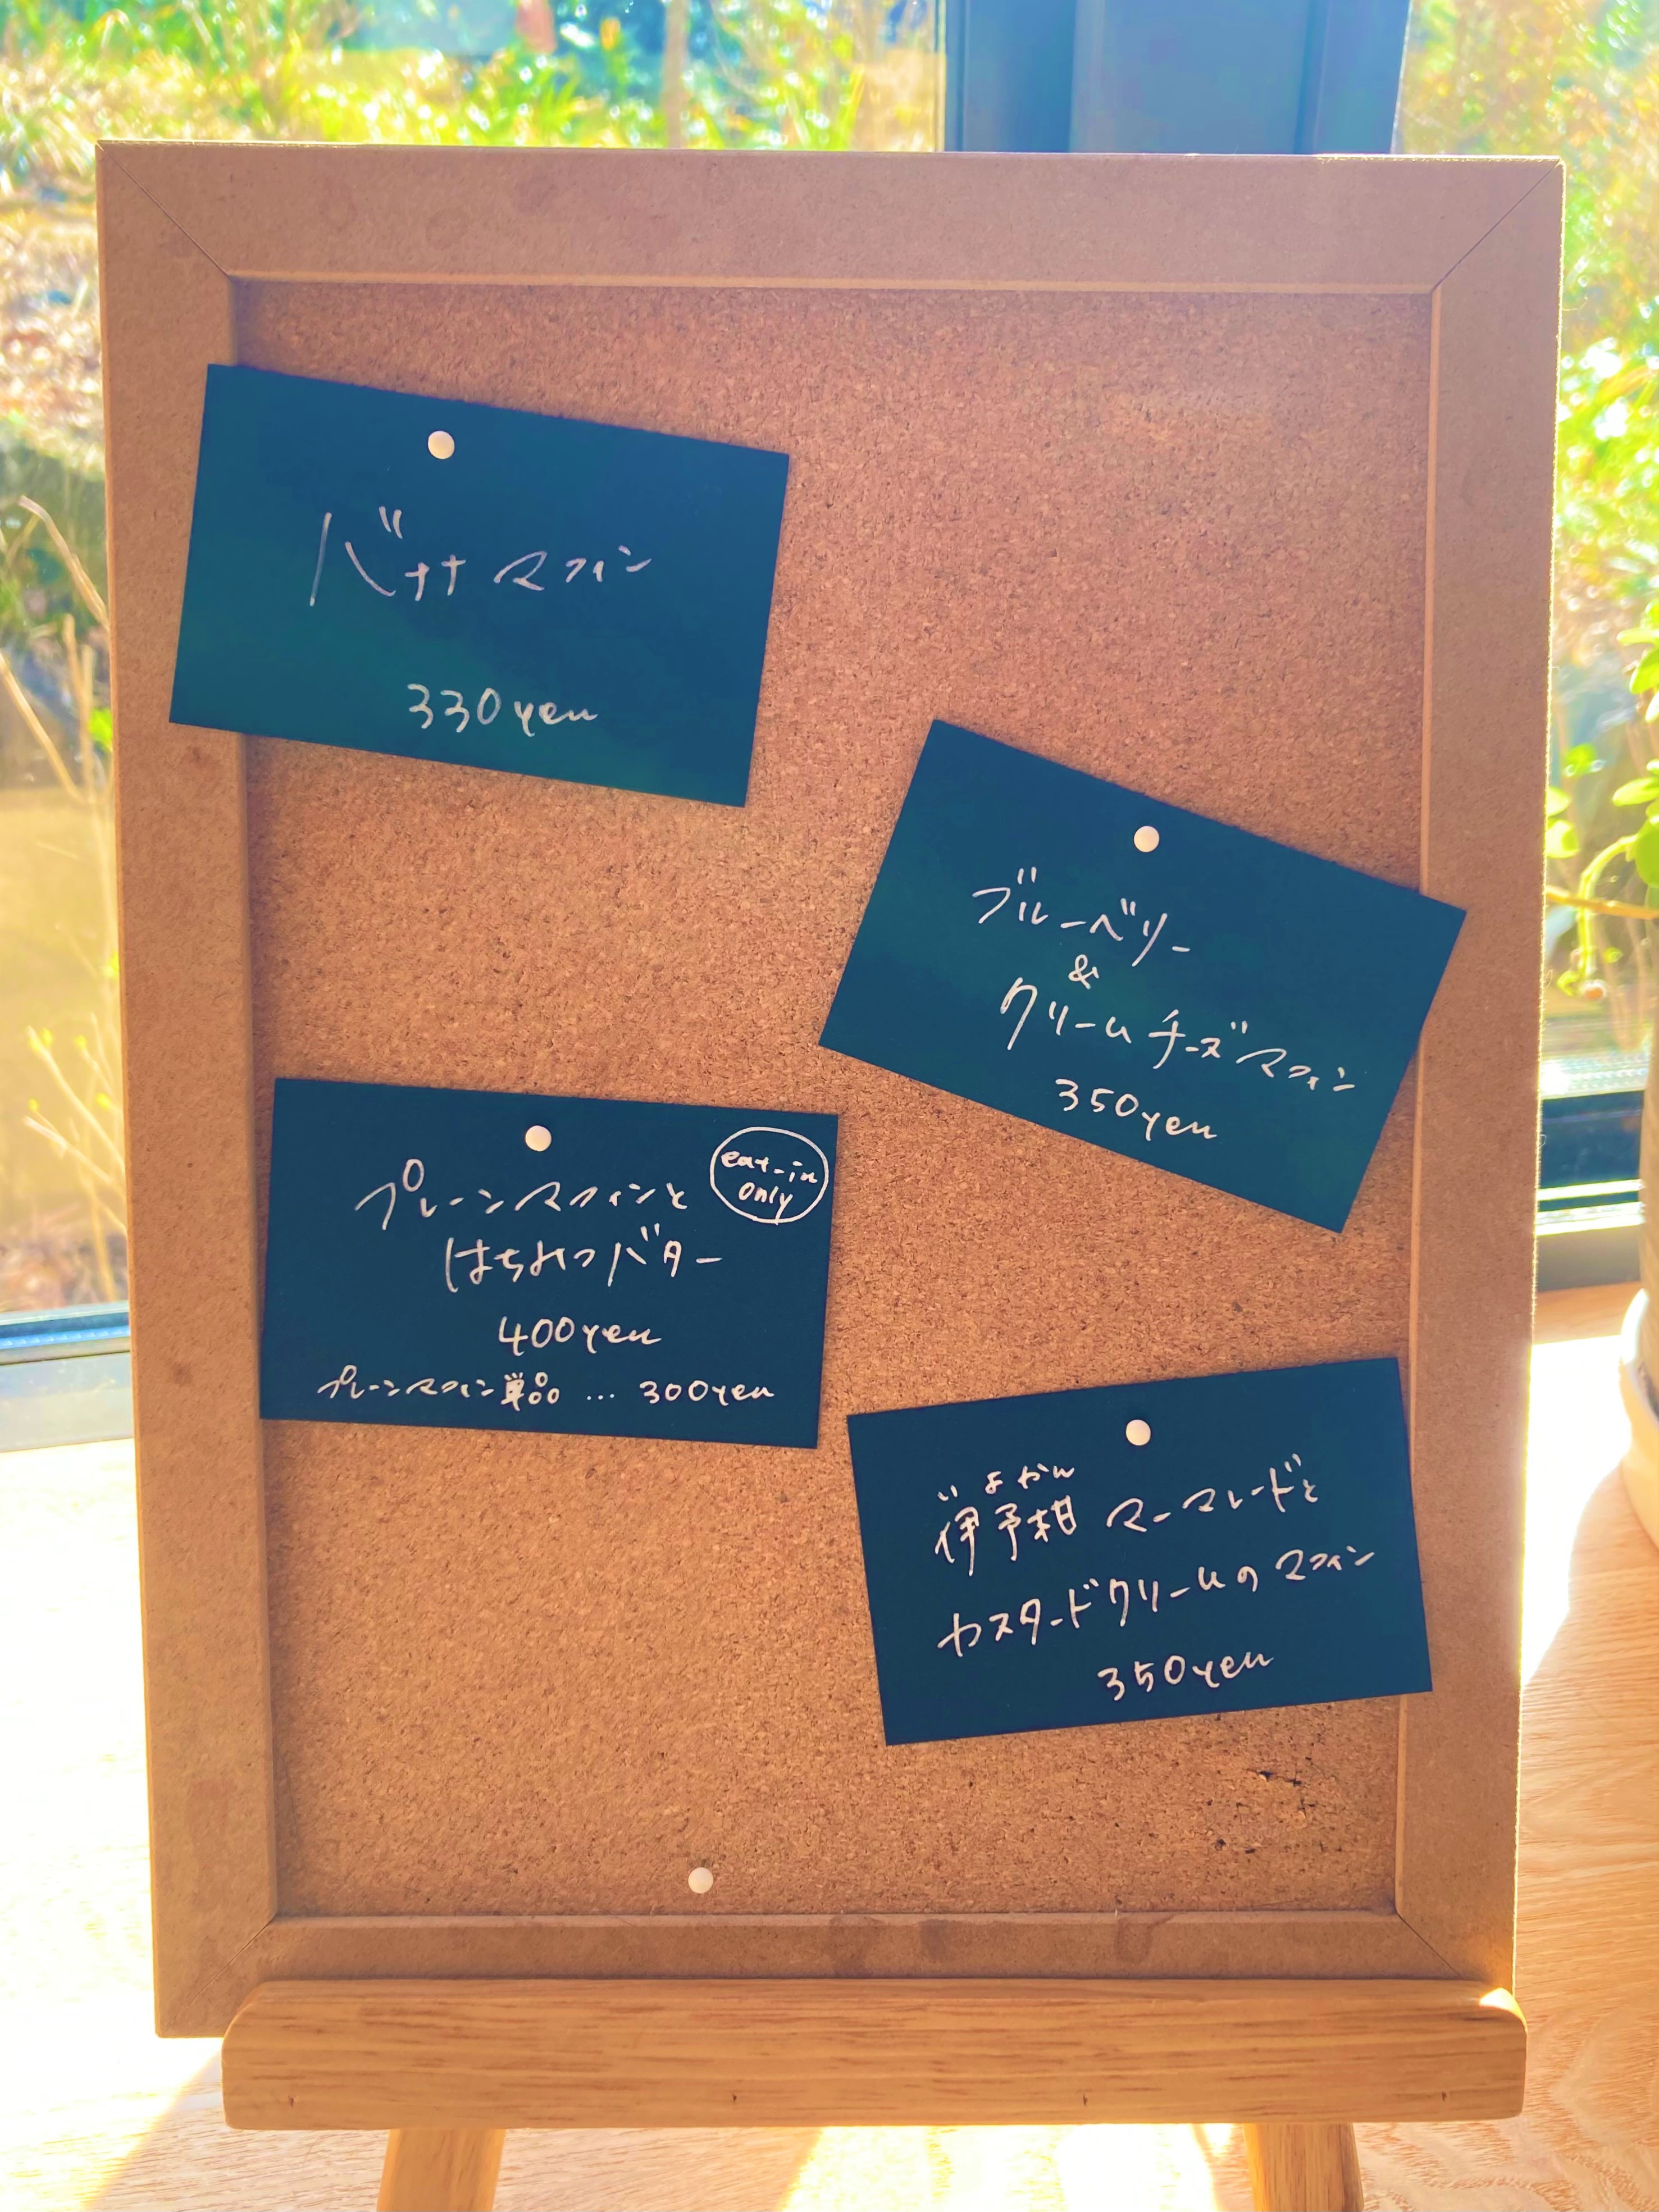 バナナマフィン
330yen
ブルーベリー
&
クリームチーズマフィン
350yen
eat-in
only
プレーンマフィンと
はちみつバター
400yen
プレーンマフィン単品 … 300yen
いよかん
伊予柑マーマレードと
カスタードクリームのマフィン
350yen